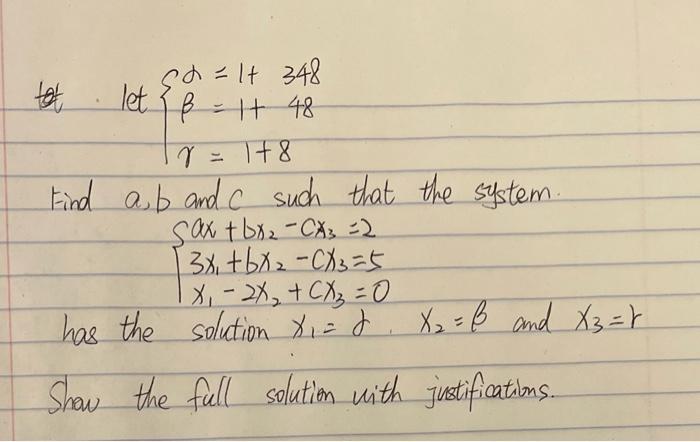 let { α = 1+ 348
β = 1+ 48
γ = 1+8
Find a,b and c such that the system.
{ ax + bx₂ - cx₃ = 2
3x₁ + bx₂ - cx₃ = 5
x₁ - 2x₂ + cx₃ = 0
has the solution x₁ = α . x₂ = β and x₃ = γ
Show the full solution with justifications.